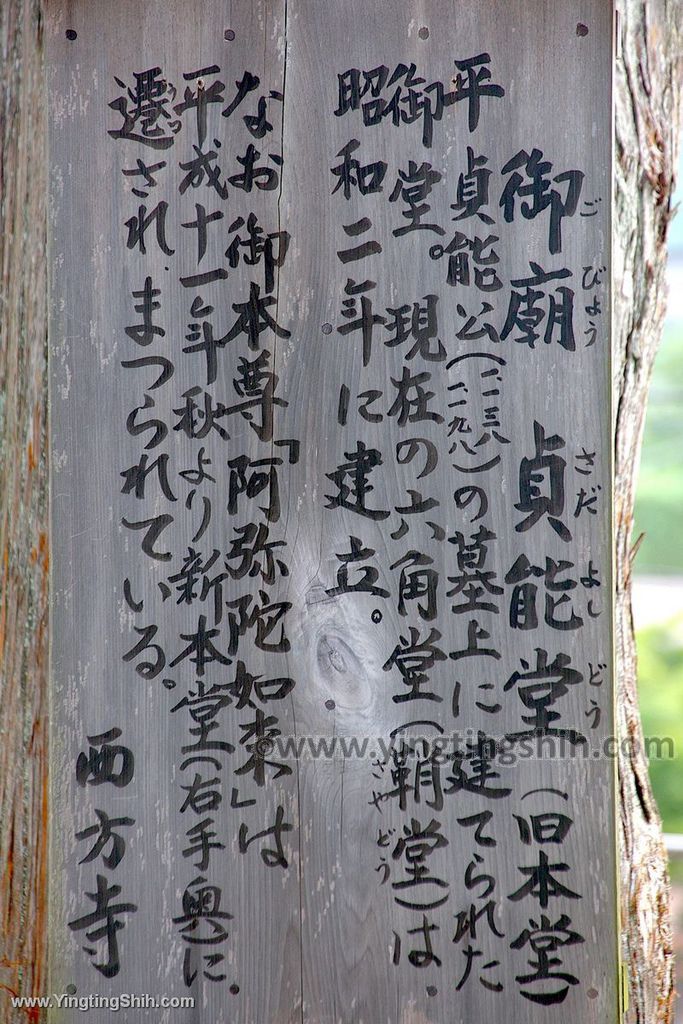 御廟 貞能堂(旧本堂)
ごびょう さだよしどう
平貞能公(一一三八
一一九八)の墓上に建てられた
御堂。現在の六角堂(鞘堂)は
さやどう
昭和二年に建立。
なお御本尊「阿弥陀如来」は
平成十一年秋より新本堂(右手奥)に、
遷され、まつられている。
うつ
西方寺
©www.yingtingshih.com
www.YingtingShih.com